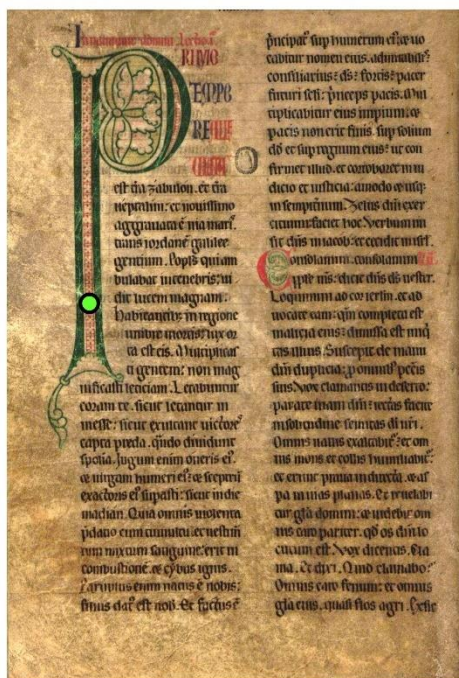 In nativitate domini lectio i.
PRIMO
TEMPO
RE alle
viata
est t̃ra zabulon. et t̃ra
neptalim: et nouissimo
aggrauata ē uia maris
trans iordanē galilee
gentium. Popl̃s qui am
bulabat in tenebris: ui
dit lucem magnam.
habitantib; in regione
umbre mortis: lux or
ta est eis. Multiplicas
ti gentem: non mag
nificasti leticiam. Letabuntur
coram te. sicut letantur in
messe: sicut exultant uictores
capta preda. q̃ndo diuidunt
spolia. Iugum enim oneris ei9.
et uirgam humeri ei9: et sceptrū
exactoris ei9 supasti: sicut in die
madian. Quia omnis uiolenta
p̃datio cum tumultu. et uestim̃
tum mixtum sanguine: erit in
combustionē. et cybus ignis.
Paruulus enim natus ē nobis:
filius dat9 est nob. Et factus ē
p̃ncipat9 sup humerum ei9. et uo
cabitur nomen eius. admirabilis:
consiliarius: d̃s: fortis: pater
futuri sc̃li: p̃nceps pacis. Mul
tiplicabitur eius imperium. et
pacis non erit finis. sup solium
dd et sup regnum eius: ut con
firmet illud: et corroboret in iu
dicio et iusticia: amodo et usq;
in sempiternum. Zelus dñi exer
cituum: faciet hoc. Verbum mi
sit dñs in iacob: et cecidit in isrl.
Consolamini. consolamini
popl̃e m̃s: dicit dñs d̃s uester.
Loquimini ad cor ierl̃m. et ad
uocate eam: q̃m completa est
malicia eius: dimissa est iniq̃
tas illius. Suscepit de manu
dñi duplicia: p̃ omnib; pecc̃is
suis. Vox clamantis in deserto:
parate uiam dñi: rectas facite
in solitudine semitas d̃i nr̃i.
Omnis uallis exaltabit̃: et om
nis mons et collis humiliabit̃:
et erunt praua in directa. et as
pa in uias planas. Et reuelabi
tur gl̃a domini: et uidebit om
nis caro pariter. qd̃ os dñi lo
cutum est. Vox dicentis. Cla
ma. Et dixi. Quid clamabo?
Omnis caro fenum: et omnis
gl̃a eius. quasi flos agri.